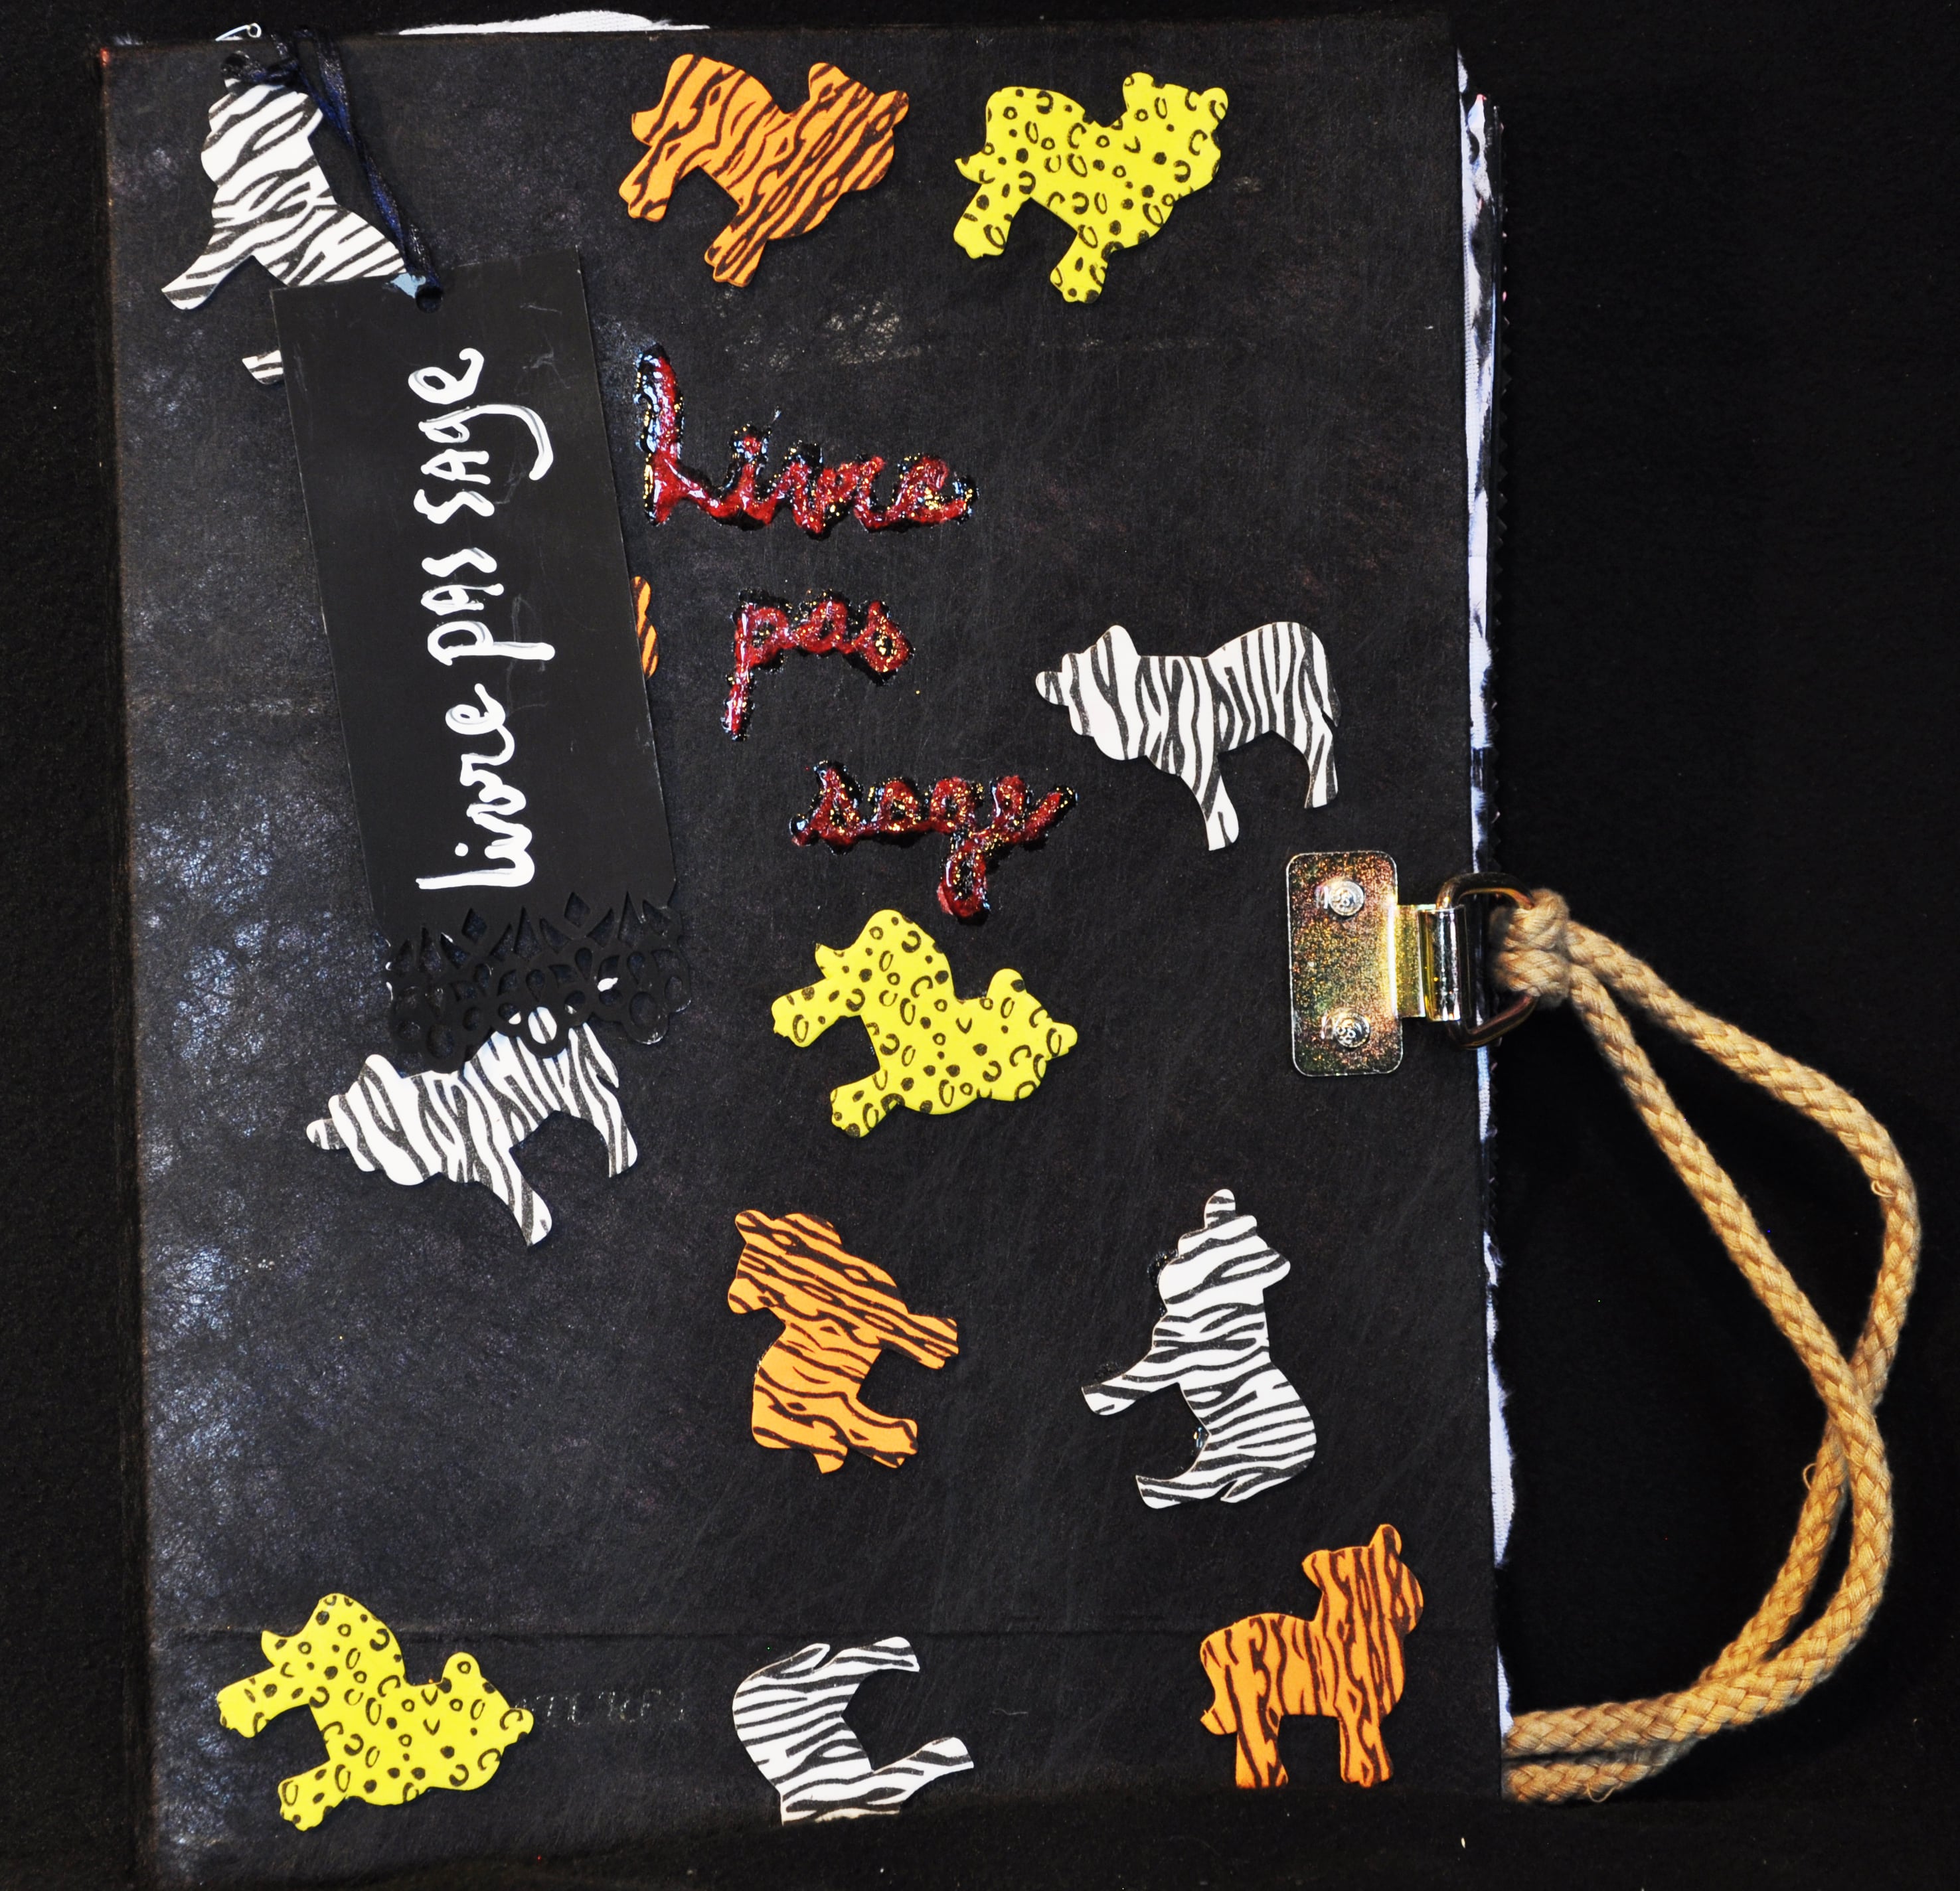 livre pas sage
Livre
pas
sage